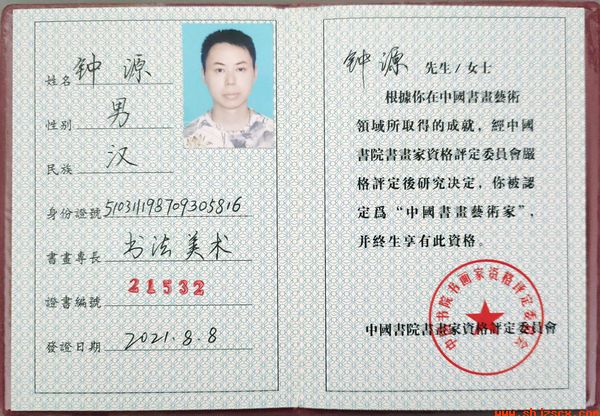 姓名 钟源
性别 男
民族 汉
身份證號 510311198709305816
書畫專長 书法美术
證書編號 21532
發證日期 2021.8.8
钟源 先生/女士
根據你在中國書畫藝術
領域所取得的成就，經中國
書院書畫家資格評定委員會嚴
格評定後研究决定，你被認
定爲“中國書畫藝術家”，
并終生享有此資格。
中國書院書畫家資格評定委員會
中国书院书画家资格评定委员会
www.shjzscx.com